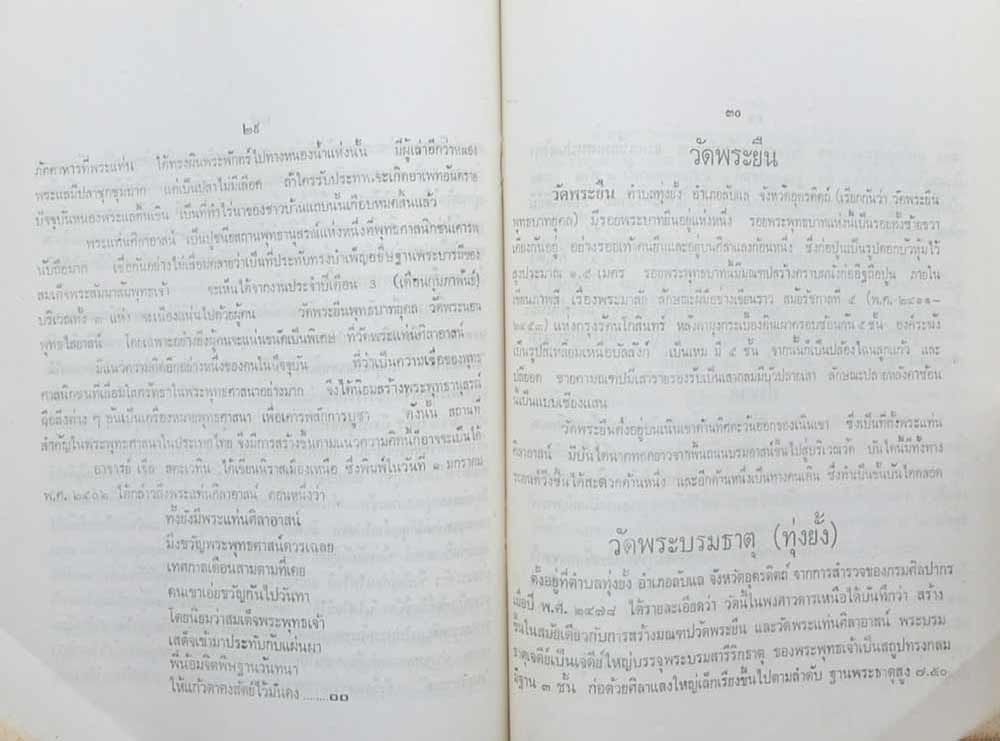 ๒๙
ภัตตาหารที่พระแท่น ได้ทรงผินพระพักตร์ไปทางหนองน้ำแห่งนั้น มีผู้เล่าอีกว่าหนอง
พระแลมีปลาชุกชุมมาก แต่เป็นปลาไม่มีเลือด ถ้าใครรับประทานจะเกิดอาเพทอันตราย
ปัจจุบันหนองพระแลตื้นเขิน เป็นที่ทำไร่นาของชาวบ้านแถบนั้นเกือบหมดสิ้นแล้ว
พระแท่นศิลาอาสน์ เป็นปูชนียสถานพุทธานุสรณ์แห่งหนึ่งที่พุทธศาสนิกชนเคารพ
นับถือมาก เชื่อกันอย่างไม่เสื่อมคลายว่าเป็นที่ประทับทรงบำเพ็ญอธิษฐานพระบารมีของ
สมเด็จพระสัมมาสัมพุทธเจ้า จะเห็นได้จากงานประจำปีเดือน 3 (เดือนกุมภาพันธ์)
บริเวณทั้ง ๓ แห่ง จะเนืองแน่นไปด้วยผู้คน วัดพระยืนพุทธบาทยุคล วัดพระนอน
พุทธไสยาสน์ โดยเฉพาะอย่างยิ่งผู้คนจะแน่นขนัดเป็นพิเศษ ที่วัดพระแท่นศิลาอาสน์
มีแนวความคิดอีกอย่างหนึ่งของคนในปัจจุบัน ที่ว่าเป็นความเชื่อของพุทธ
ศาสนิกชนที่เลื่อมใสศรัทธาในพระพุทธศาสนาอย่างมาก จึงได้นิยมสร้างพระพุทธานุสรณ์
สิ่งต่าง ๆ อันเป็นเครื่องหมายพุทธศาสนา เพื่อเคารพสักการบูชา ดังนั้น สถานที่
สำคัญในพระพุทธศาสนาในประเทศไทย จึงมีการสร้างขึ้นตามแนวความคิดนี้ก็อาจจะเป็นได้
อาจารย์ เจือ สตะเวทิน ได้เขียนนิราศเมืองเหนือ ซึ่งพิมพ์ในวันที่ ๑ มกราคม
พ.ศ. ๒๕๐๒ ได้กล่าวถึงพระแท่นศิลาอาสน์ ตอนหนึ่งว่า
ทั้งยังมีพระแท่นศิลาอาสน์
มิ่งขวัญพระพุทธศาสน์ควรเฉลย
เทศกาลเดือนสามตามที่เคย
คนเขาเอ่ยชวัญกันไปวันทา
โดยนิยมว่าสมเด็จพระพุทธเจ้า
เสด็จเข้ามาประทับกับแผ่นผา
พี่น้อมจิตพิษฐานวันทนา
ให้แก้วตาคงสัตย์ไว้มั่นคง .......๑๑
๓๐
วัดพระยืน
วัดพระยืน ตำบลทุ่งยั้ง อำเภอลับแล จังหวัดอุตรดิตถ์ (เรียกกันว่า วัดพระยืน
พุทธบาทยุคล) มีรอยพระพุทธบาทยืนอยู่แห่งหนึ่ง รอยพระพุทธบาทแห่งนี้เป็นรอยทั้งซ้ายขวา
เคียงกันอยู่ อย่างรอยเท้าคนยืนและอยู่บนศิลาแลงก้อนหนึ่ง ซึ่งก่อปูนเป็นรูปดอกบัวหุ้มไว้
สูงประมาณ ๑.๕ เมตร รอยพระพุทธบาทนี้มีมณฑปสร้างครอบผนังก่ออิฐถือปูน ภายใน
เขียนภาพสี เรื่องพระมาลัย ลักษณะฝีมือช่างเขียนราว สมัยรัชกาลที่ ๕ (พ.ศ. ๒๔๑๑-
๒๔๕๓) แห่งกรุงรัตนโกสินทร์ หลังคามุงกระเบื้องดินเผาครอบซ้อนกัน ๕ ชั้น องค์ระฆัง
เป็นรูปสี่เหลี่ยมเหนือบัลลังก์ เป็นเหม มี ๕ ชั้น จากนั้นก็เป็นปล้องไฉนลูกแก้ว และ
ปลียอด ชายคามณฑปมีเสารายรองรับเป็นเสากลมมีบัวปลายเสา ลักษณะปลายหลังคาซ้อน
นี้เป็นแบบเชียงแสน
วัดพระยืนตั้งอยู่บนเนินเขาด้านทิศตะวันออกของเนินเขา ซึ่งเป็นที่ตั้งพระแท่น
ศิลาอาสน์ มีบันไดนาคทอดยาวจากพื้นถนนบรมอาสน์ขึ้นไปสู่บริเวณวัด บันไดนี้มีทั้งทาง
รถยนต์วิ่งขึ้นได้สะดวกด้านหนึ่ง และอีกด้านหนึ่งเป็นทางคนเดิน ซึ่งทำเป็นขั้นบันไดตลอด
วัดพระบรมธาตุ (ทุ่งยั้ง)
ตั้งอยู่ที่ตำบลทุ่งยั้ง อำเภอลับแล จังหวัดอุตรดิตถ์ จากการสำรวจของกรมศิลปากร
เมื่อปี พ.ศ. ๒๔๗๘ ได้รายละเอียดว่า วัดนี้ในพงศาวดารเหนือได้บันทึกว่า สร้าง
ขึ้นในสมัยเดียวกับการสร้างมณฑปวัดพระยืน และวัดพระแท่นศิลาอาสน์ พระบรม
ธาตุเจดีย์เป็นเจดีย์ใหญ่บรรจุพระบรมสารีริกธาตุ ของพระพุทธเจ้าเป็นสถูปทรงกลม
มีฐาน ๓ ชั้น ก่อด้วยศิลาแลงใหญ่เล็กเรียงขึ้นไปตามลำดับ ฐานพระธาตุสูง ๗.๕๐